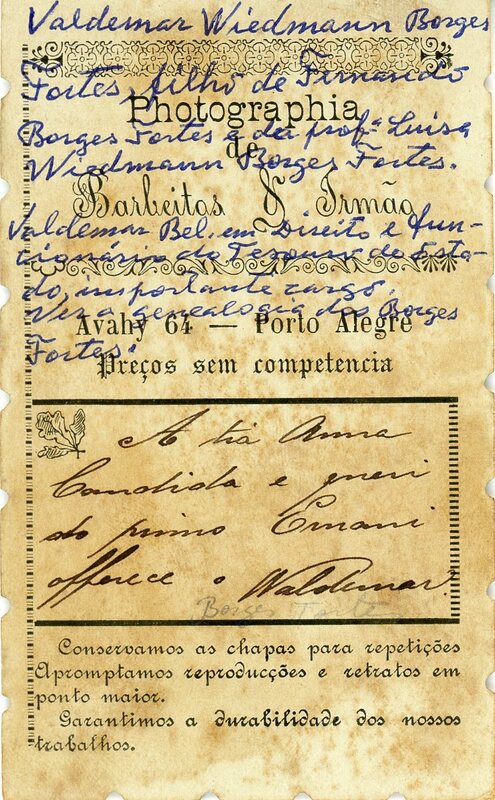 Valdemar Wiedmann Borges
Fortes, filho de Fernando
Photographia
Borges Fortes e da profª Luisa
de
Wiedmann Borges Fortes.
Barbeitos & Irmão
Valdemar Bel. em Direito e fun-
cionário do Tesouro do Esta-
do, importante cargo.
Ver a genealogia dos Borges
Avahy 64 — Porto Alegre
Fortes.
Preços sem competencia
A tia Anna
Candida e queri
do primo Ernani
offerece o Waldemar.
Borges Fortes
Conservamos as chapas para repetições
Apromptamos reproducções e retratos em
ponto maior.
Garantimos a durabilidade dos nossos
trabalhos.